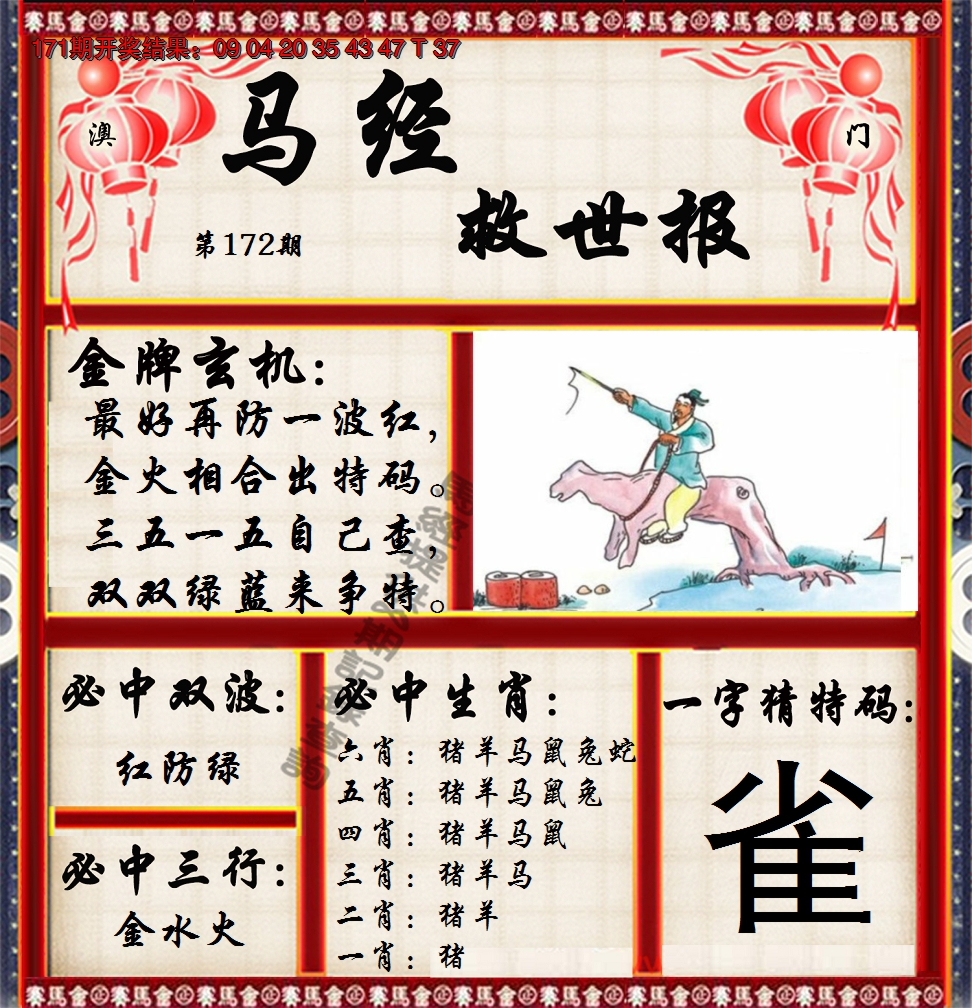 171期开奖结果：09 04 20 35 43 47 T 37
澳
门
马经
救世报
第172期
金牌玄机：
最好再防一波红，
金火相合出特码。
三五一五自己查，
双双绿蓝来争特。
必中双波：
红防绿
必中三行：
金水火
必中生肖：
六肖：猪羊马鼠兔蛇
五肖：猪羊马鼠兔
四肖：猪羊马鼠
三肖：猪羊马
二肖：猪羊
一肖：猪
一字猜特码：
雀